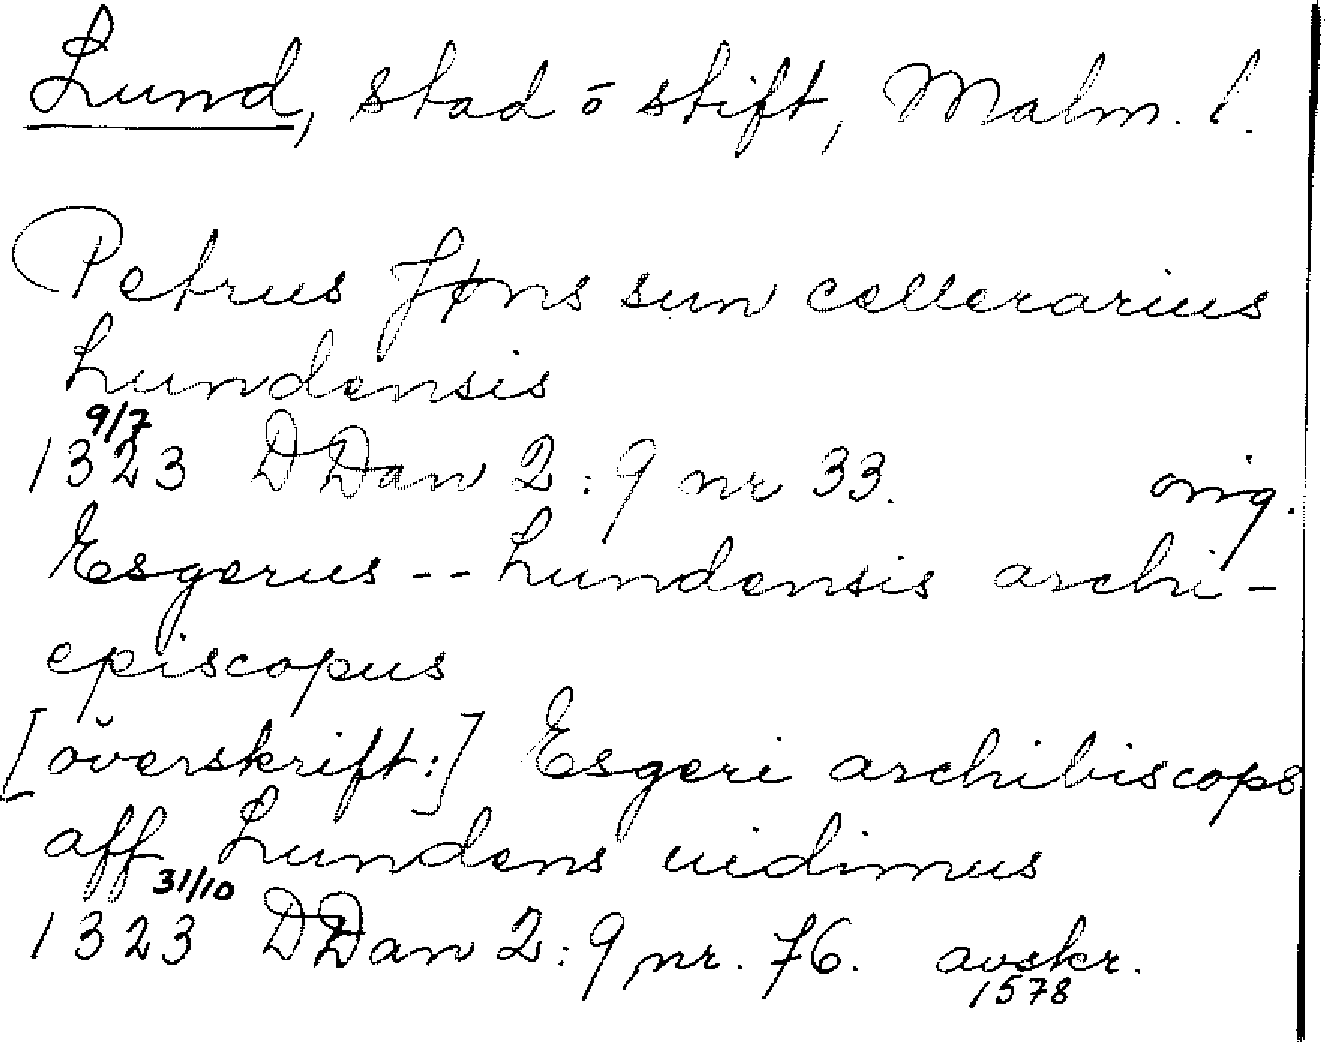 Lund, stad o stift, Malm. l.
Petrus Jøns sun cellerarius
Lundensis
9/7
1323 DDan 2:9 nr 33. orig.
Esgerus -- Lundensis archi-
episcopus
[överskrift:] Esgeri archibiscops
aff Lundens uidimus
31/10
1323 DDan 2:9 nr. 76. avskr.
1578